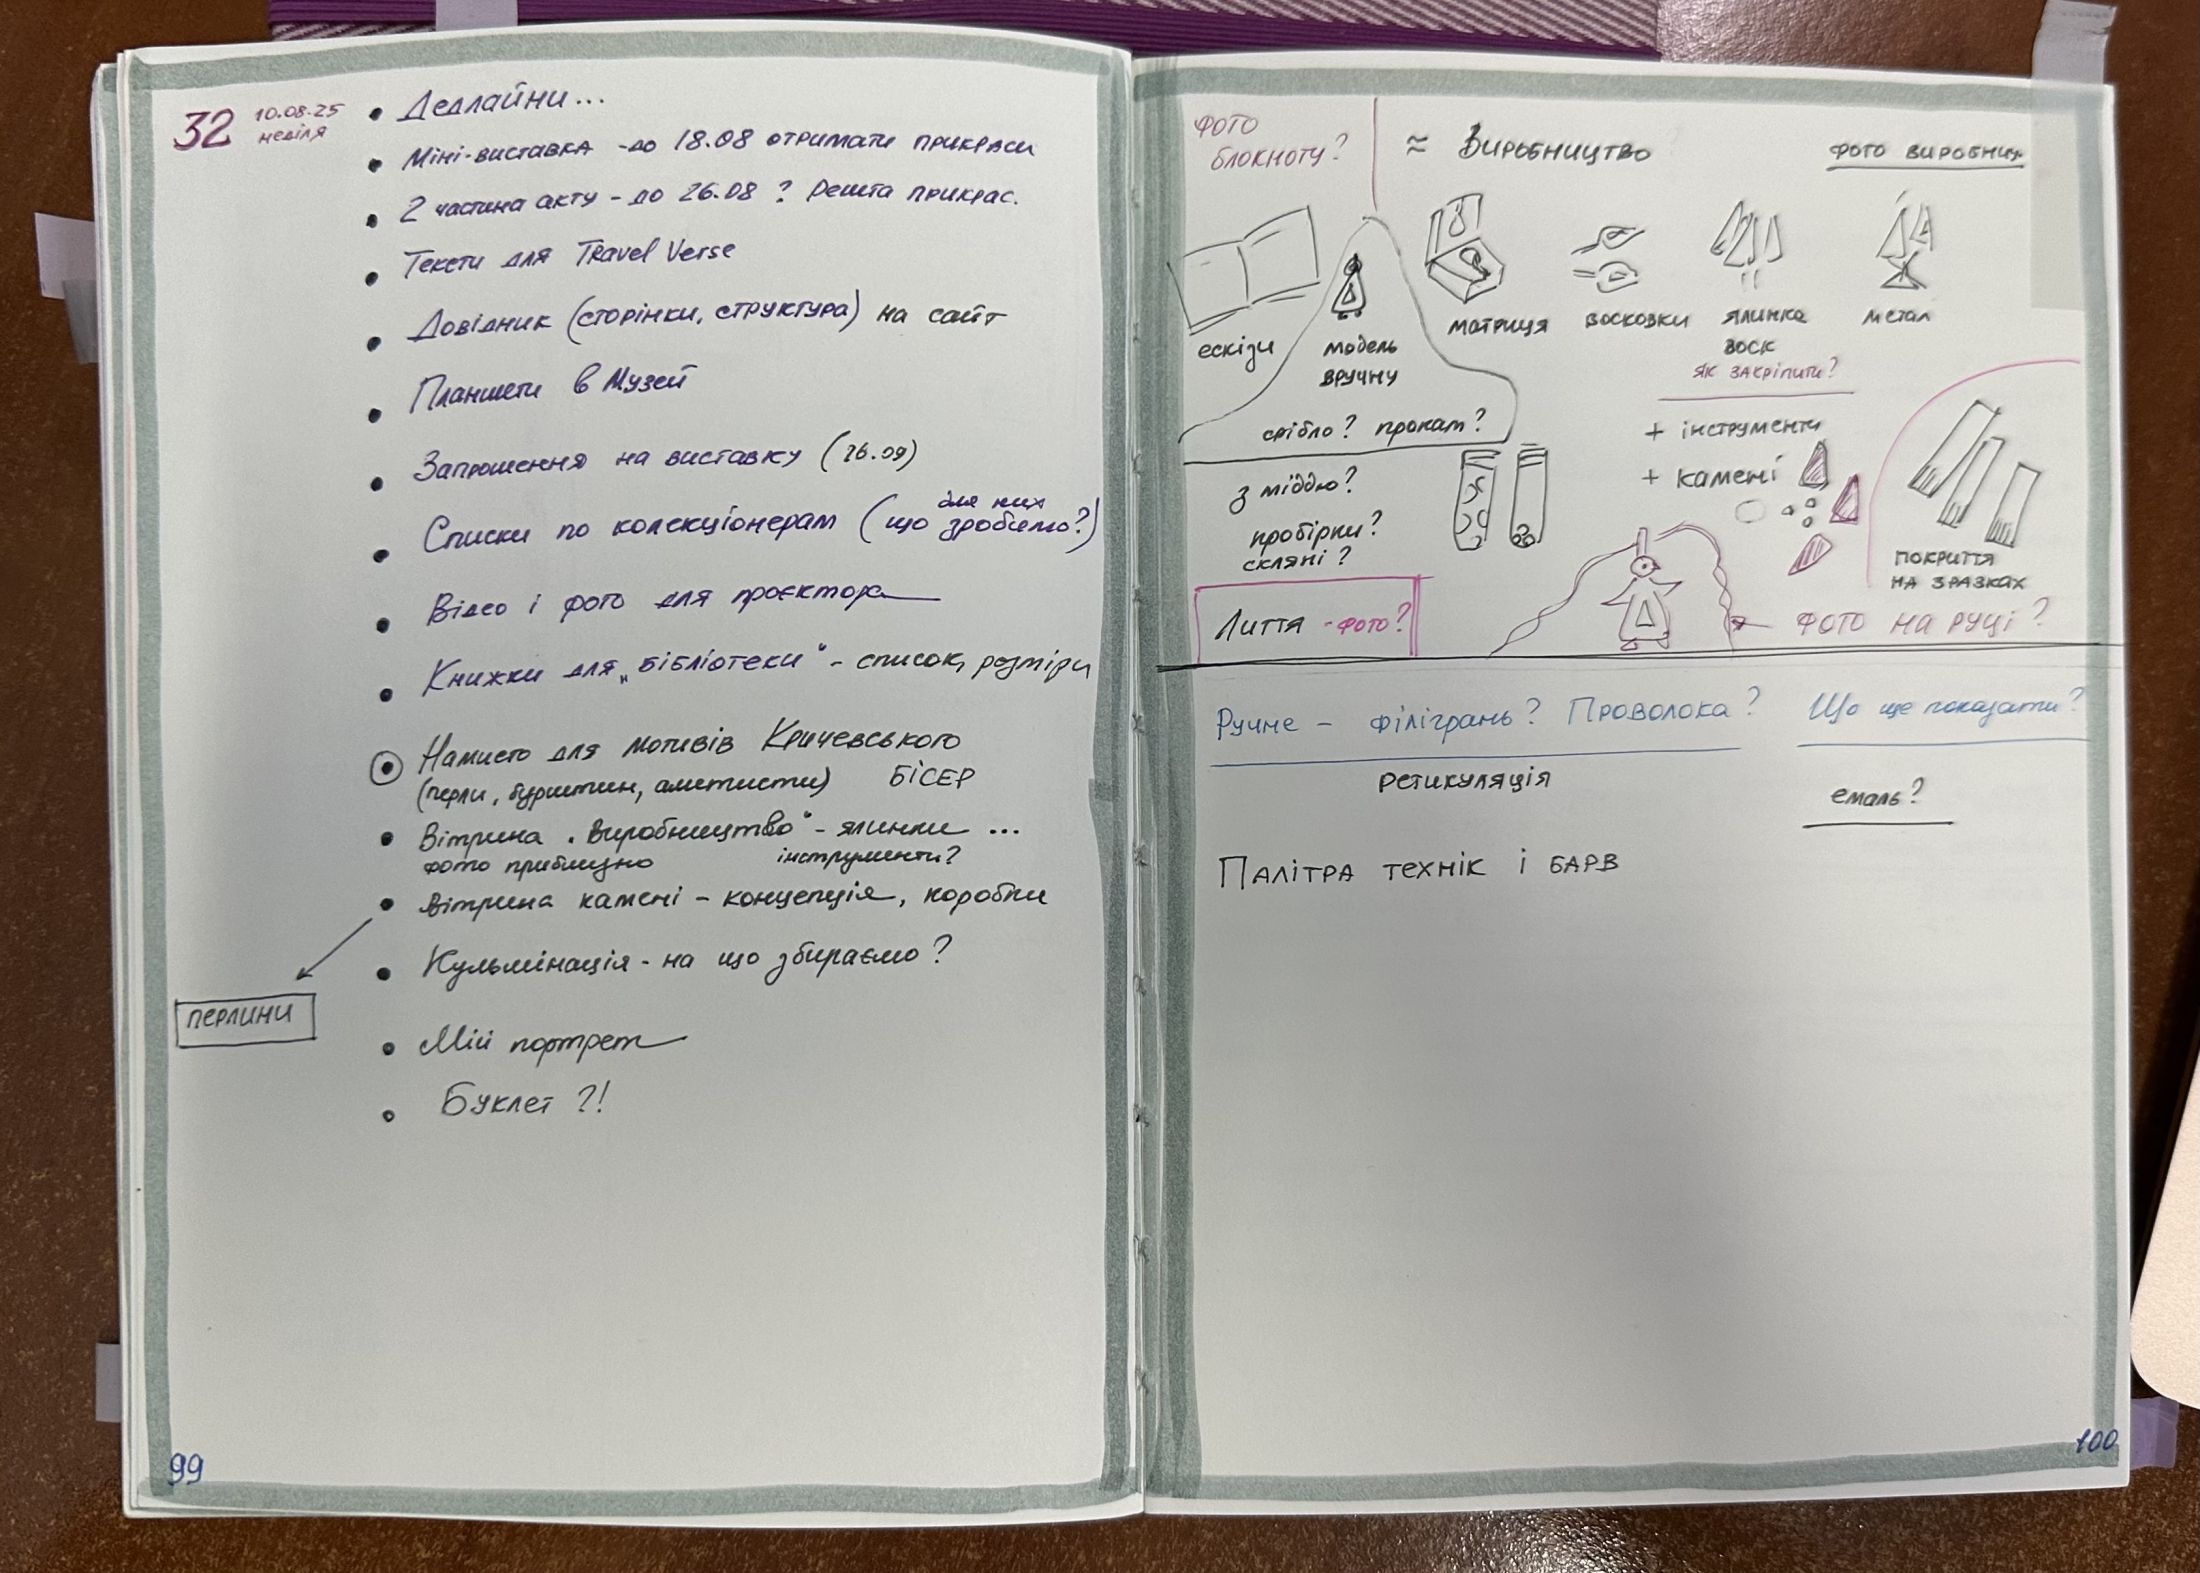 32 10.08.25
неділя
• Дедлайни...
• Міні-виставка - до 18.08 отримати прикраси
• 2 частина акту - до 26.08 ? Решта прикрас.
• Тексти для Travel Verse
• Довідник (сторінки, структура) на сайт
• Планшети в Музей
• Запрошення на виставку (26.09)
• Списки по колекціонерам (що для них зробимо?)
• Відео і фото для проєктора
• Книжки для „бібліотеки" - список, розміри
• Намисто для мотивів Кричевського
(перли, бурштин, аметисти) БІСЕР
• Вітрина „Виробництво" - ялинки ...
фото приблизно інструменти?
• Вітрина камені - концепція, коробки
ПЕРЛИНИ
• Кульмінація - на що збираємо?
• Мій портрет
• Буклет ?!
99
ФОТО
блокноту?
≈ Виробництво
ФОТО ВИРОБНИЦ
ескізи
модель
вручну
матриця
восковки
ялинка
воск
як закріпити?
метал
срібло? прокат?
+ інструменти
+ камені
з міддю?
пробірки?
скляні?
ПОКРИТТЯ
НА ЗРАЗКАХ
Лиття - фото?
ФОТО НА РУЦІ?
Ручне - філігрань? Проволока?
Що ще показати?
ретикуляція
емаль?
Палітра технік і барв
100